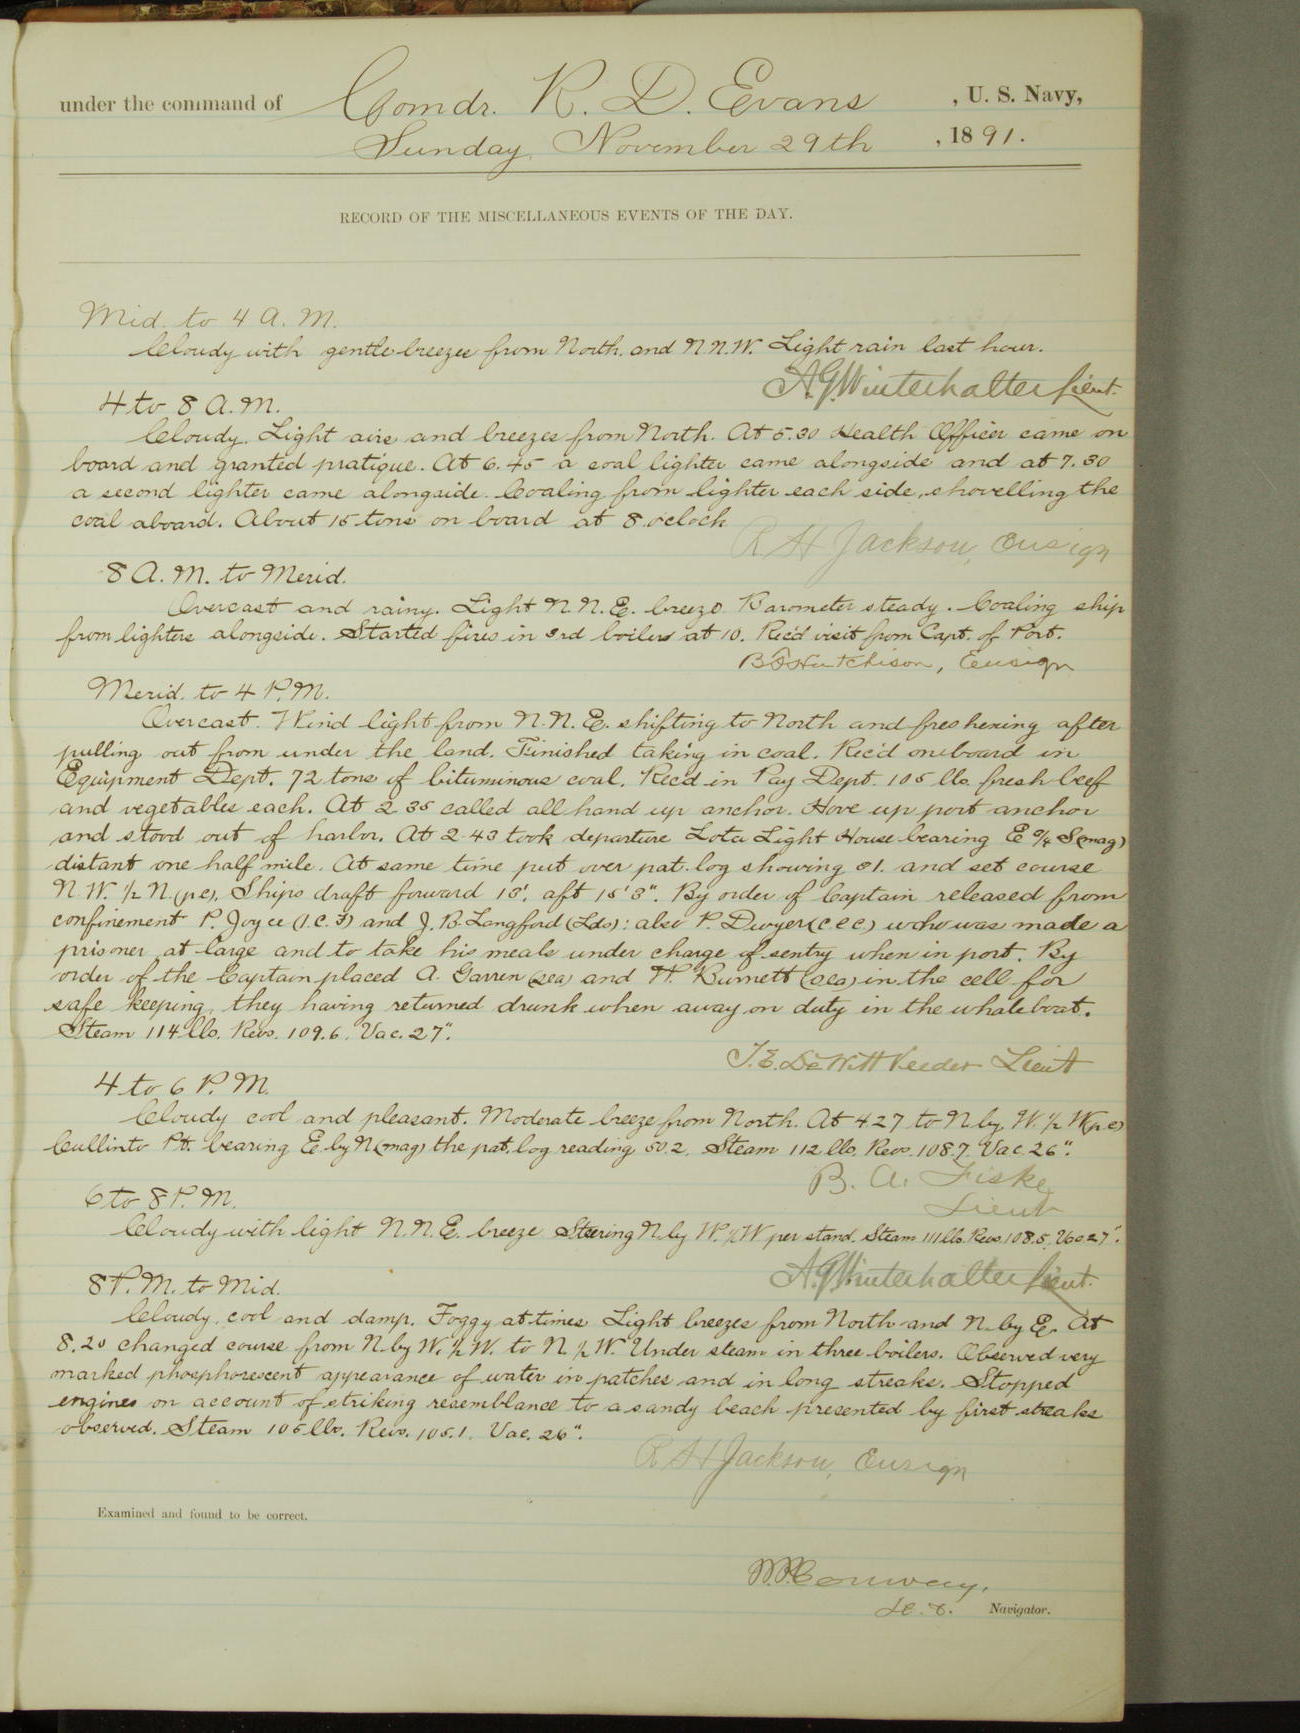 under the command of Comdr. R. D. Evans, U. S. Navy,
Sunday, November 29th, 1891.
RECORD OF THE MISCELLANEOUS EVENTS OF THE DAY.
Mid. to 4 A. M.
Cloudy with gentle breezes from North and N.N.W. Light rain last hour.
A.G. Winterhalter Lieut.
4 to 8 A.M.
Cloudy. Light airs and breezes from North. At 5.30 Health Officer came on
board and granted pratique. At 6.45 a coal lighter came alongside and at 7.30
a second lighter came alongside. Coaling from lighter each side, shovelling the
coal aboard. About 15 tons on board at 8 o'clock
R H Jackson, Ensign
8 A. M. to Merid.
Overcast and rainy. Light N.N.E. breeze. Barometer steady. Coaling ship
from lighters alongside. Started fires in 3rd boilers at 10. Rec'd visit from Capt. of Port.
B F Hutchison, Ensign
Merid. to 4 P.M.
Overcast. Wind light from N.N.E. shifting to North and freshening after
pulling out from under the land. Finished taking in coal. Rec'd on board in
Equipment Dept. 72 tons of bituminous coal. Rec'd in Pay Dept. 105 lbs. fresh beef
and vegetables each. At 2 35 called all hand up anchor. Hove up port anchor
and stood out of harbor. At 2 43 took departure Lota Light House bearing E 3/4 S (mag)
distant one half mile. At same time put over pat. log showing 31. and set course
N.W. 1/2 N (p c). Ships draft forward 13', aft 15' 3". By order of Captain released from
confinement P. Joyce and J. B. Langford (Lds): also P. Dwyer who was made a
prisoner at large and to take his meals under charge of sentry when in port. By
order of the Captain placed A. Garren (sea) and H. Burnett (sea) in the cell for
safe keeping, they having returned drunk when away on duty in the whaleboat.
Steam 114 lbs. Revs. 109.6. Vac. 27".
T. E. DeWitt Veeder Lieut
4 to 6 P. M.
Cloudy cool and pleasant. Moderate breeze from North. At 4 27 to N by. W. 1/2 W (p c)
Pt. bearing E by N (mag) the pat. log reading 50.2. Steam 112 lbs. Revs. 108.7. Vac 26".
B. A. Fiske
Lieut
6 to 8 P. M.
Cloudy with light N.N.E. breeze Steering N by W. 1/2 W per stand. Steam 111 lbs. Revs. 108.5. Vac 27".
A.G. Winterhalter Lieut.
8 P. M. to Mid.
Cloudy, cool and damp. Foggy at times Light breezes from North and N. by E. At
8.20 changed course from N. by W. 1/2 W. to N. 1/2 W. Under steam in three boilers. Observed very
marked phosphorescent appearance of water in patches and in long streaks. Stopped
engines on account of striking resemblance to a sandy beach presented by first streaks
observed. Steam 105 lbs. Revs. 105.1. Vac. 26".
R H Jackson, Ensign
Examined and found to be correct.
W.P. Conway,
Lt. Navigator.